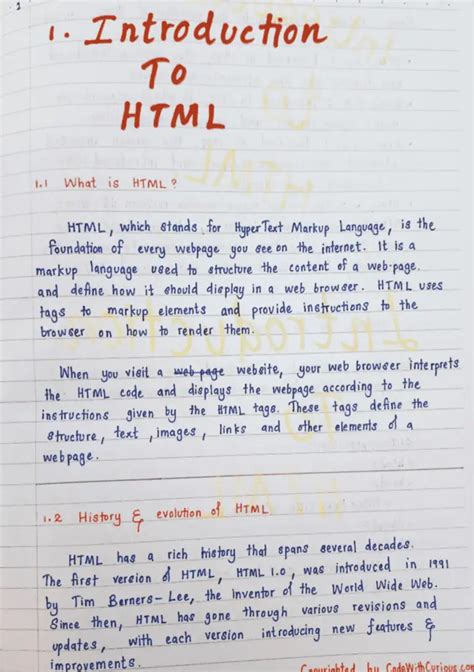 1
1. Introduction
TO
HTML
1.1 What is HTML?
HTML, which stands for HyperText Markup Language, is the
foundation of every webpage you see on the internet. It is a
markup language used to structure the content of a web-page.
and define how it should display in a web browser. HTML uses
tags to markup elements and provide instructions to the
browser on how to render them.
When you visit a web page website, your web browser interprets
the HTML code and displays the webpage according to the
instructions given by the HTML tags. These tags define the
structure, text, images, links and other elements of a
webpage.
1.2 History & evolution of HTML
HTML has a rich history that spans several decades.
The first version of HTML, HTML 1.0, was introduced in 1991
by Tim Berners-Lee, the inventor of the World Wide Web.
Since then, HTML has gone through various revisions and
updates, with each version introducing new features &
improvements.
Copyrighted by CodeWithCurious.com